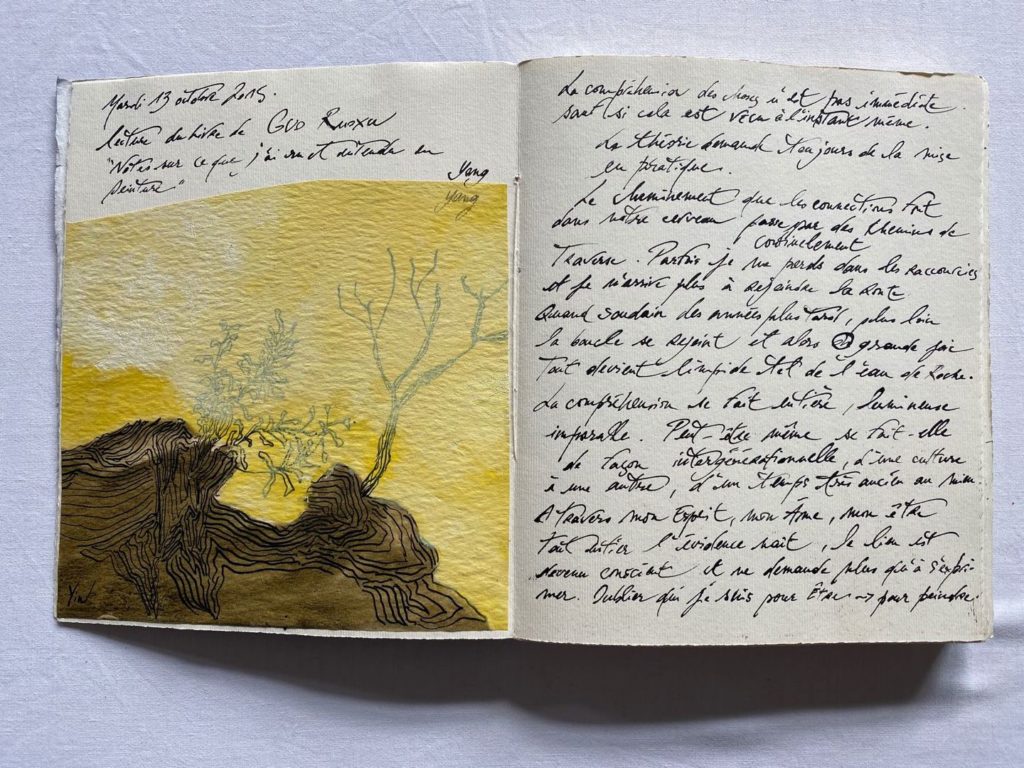 Mardi 13 octobre 2015.
Lecture du livre de GUO RUOXU
"Notes sur ce que j'ai vu et entendu en
peinture"
Yang
Yang
Yin
La compréhension des choses n'est pas immédiate
sauf si cela est vécu à l'instant même.
La théorie demande toujours de la mise
en pratique.
Le cheminement que les connections font
dans notre cerveau passe par des chemins de
continuellement
Traverse. Parfois je me perds dans les raccourcis
et je n'arrive plus à rejoindre la Route
Quand soudain des années plus tard, plus loin
la boucle se rejoint et alors grande joie
Tout devient limpide tel de l'eau de Roche.
La compréhension se fait entière, lumineuse
imparable. Peut-être même se fait-elle
de façon intergénérationnelle, d'une culture
à une autre, d'un temps très ancien au mien.
A travers mon Esprit, mon Âme, mon être
tout entier l'évidence nait, le lien est
devenu conscient et ne demande plus qu'à s'expri-
mer. Oublier qui je suis pour Être → pour peindre.